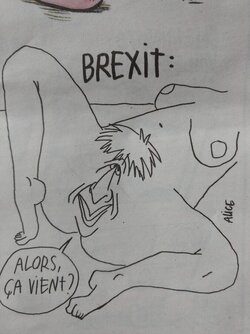 BREXIT:
ALORS,
ÇA VIENT?
ALICE